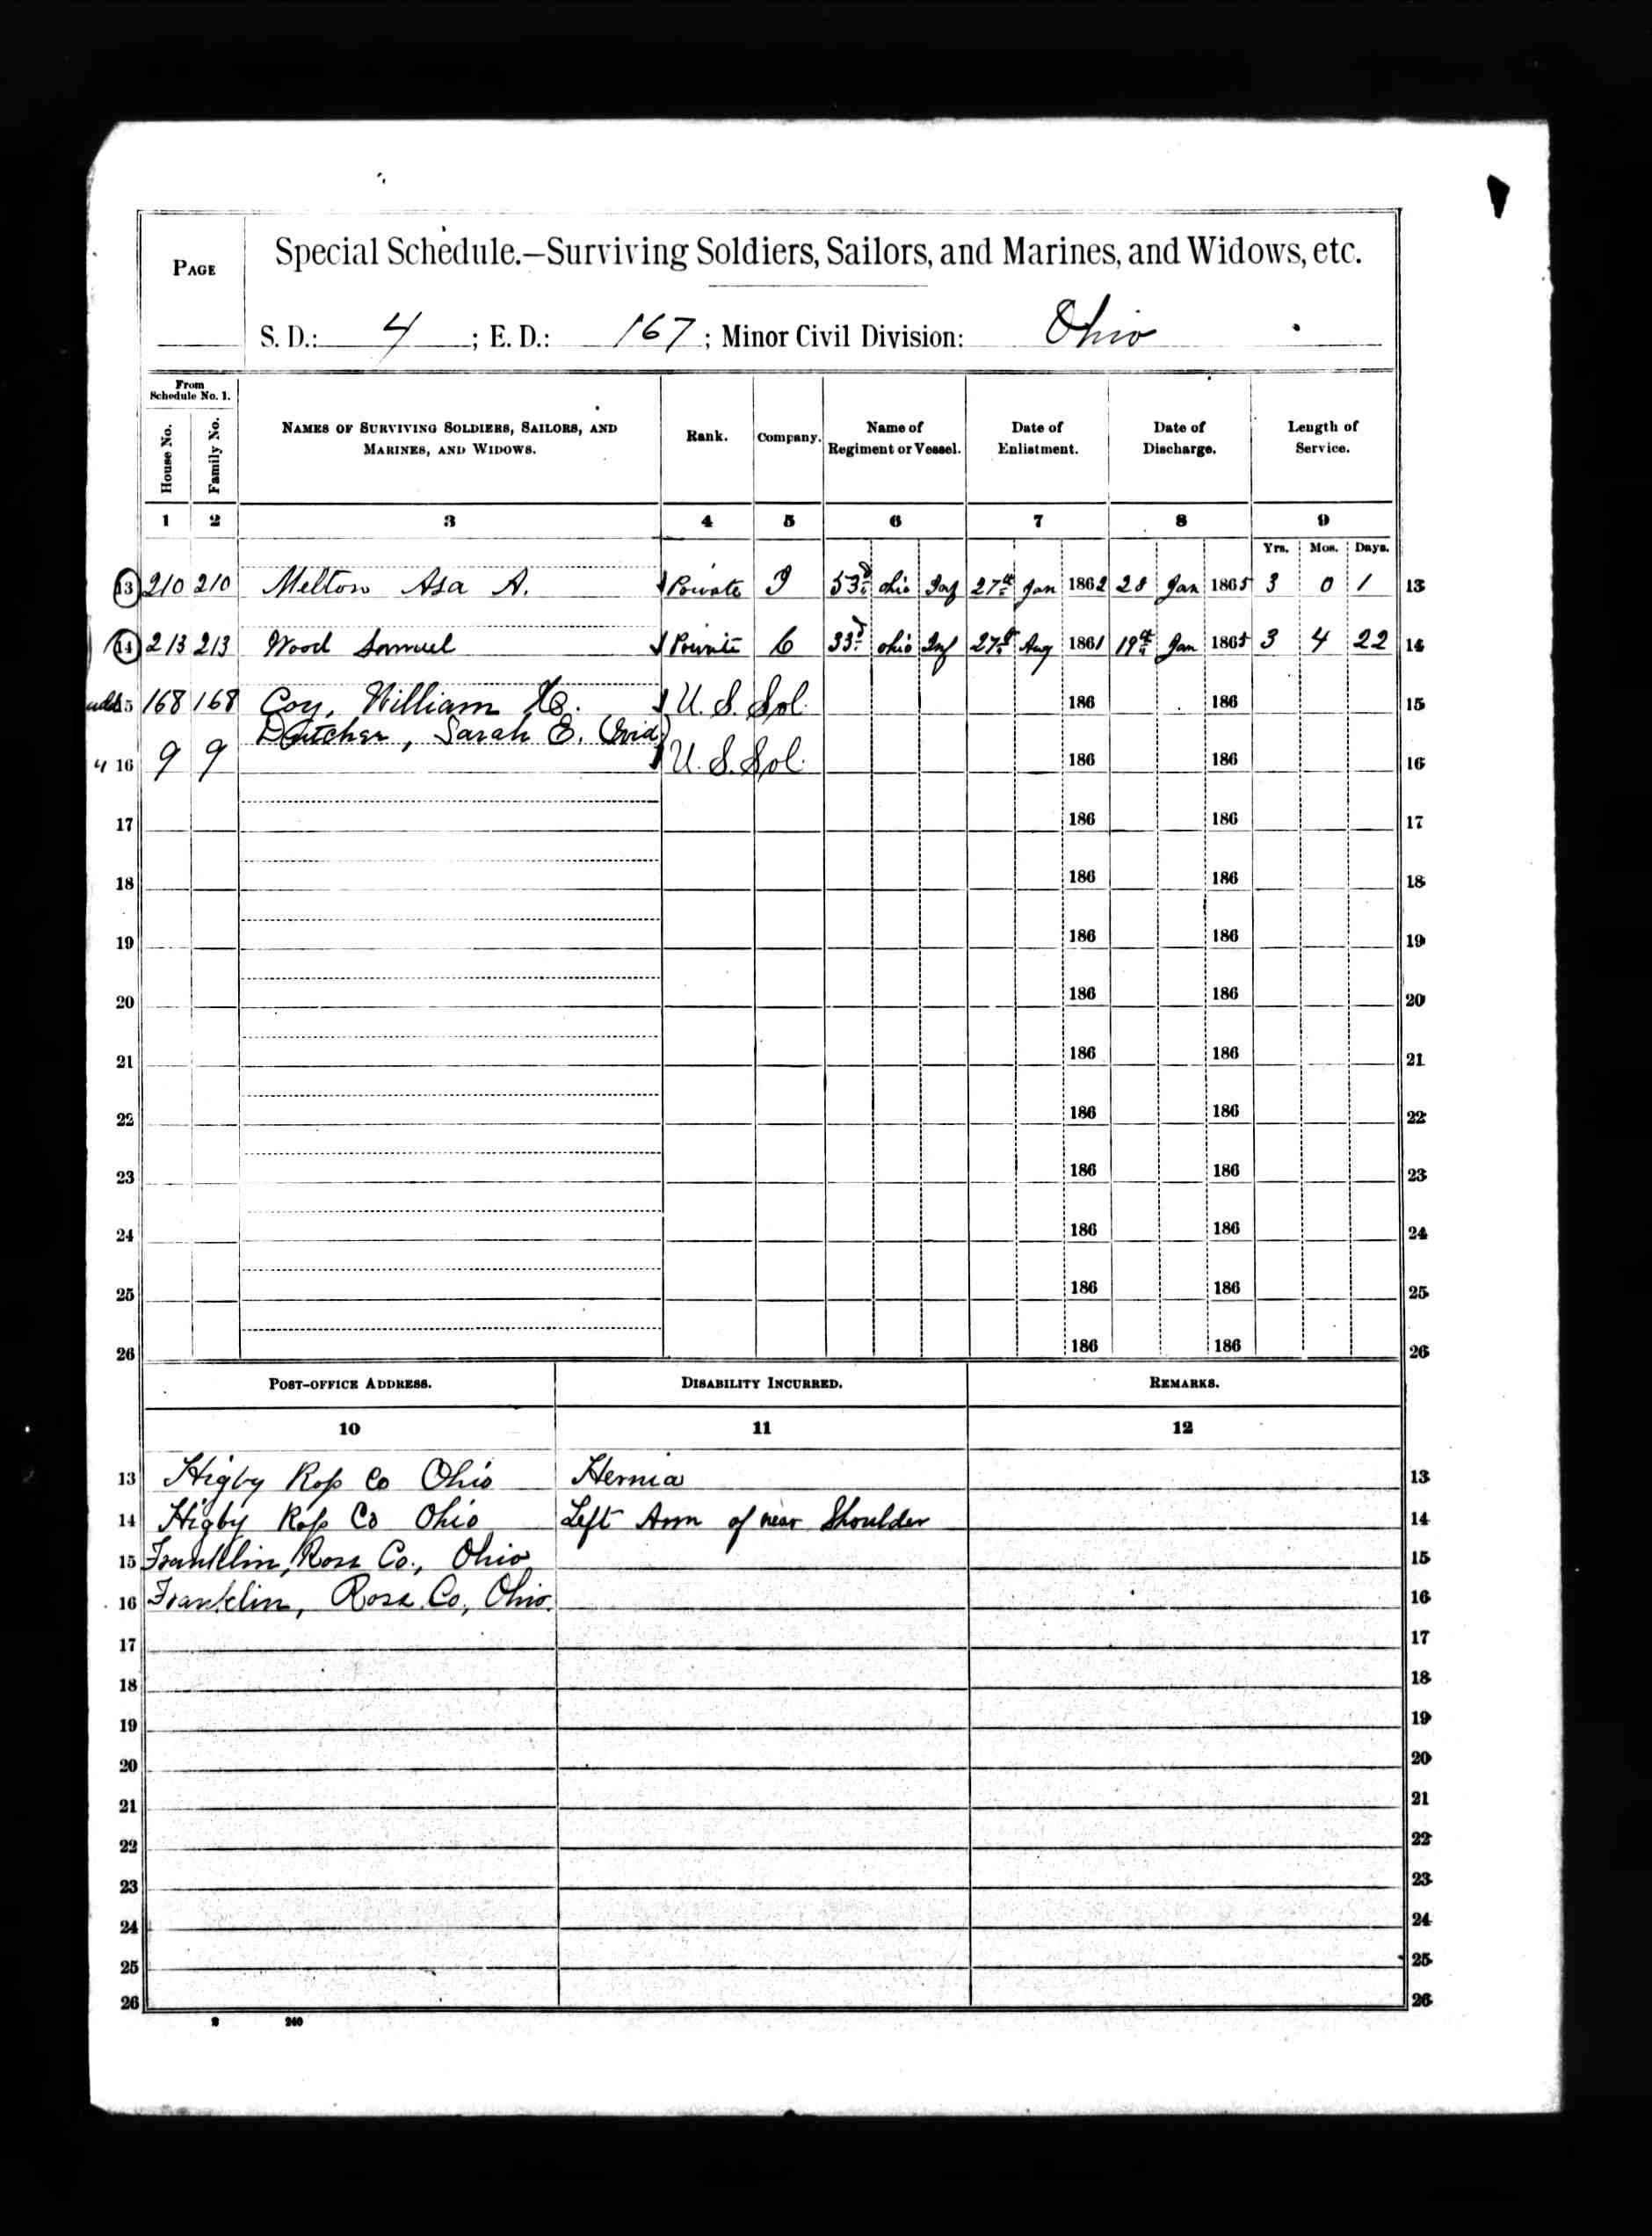 PAGE
Special Schedule.—Surviving Soldiers, Sailors, and Marines, and Widows, etc.
S. D.: 4 ; E. D.: 167 ; Minor Civil Division: Ohio
From Schedule No. 1.
House No. Family No. NAMES OF SURVIVING SOLDIERS, SAILORS, AND MARINES, AND WIDOWS. Rank. Company. Name of Regiment or Vessel. Date of Enlistment. Date of Discharge. Length of Service.
1 2 3 4 5 6 7 8 9
Yrs. Mos. Days.
13 210 210 Melton Asa A. Private I 53d Ohio Inf 27th Jan 1862 28 Jan 1865 3 0 1 13
14 213 213 Wood Samuel Private C 33d Ohio Inf 27th Aug 1861 19th Jan 1865 3 4 22 14
15 168 168 Coy, William H. U. S. Sol. 186 186 15
16 9 9 Dutcher, Sarah E. U. S. Sol. 186 186 16
17 186 186 17
18 186 186 18
19 186 186 19
20 186 186 20
21 186 186 21
22 186 186 22
23 186 186 23
24 186 186 24
25 186 186 25
26 186 186 26
POST-OFFICE ADDRESS. DISABILITY INCURRED. REMARKS.
10 11 12
13 Higby Ross Co Ohio Hernia 13
14 Higby Ross Co Ohio Left Arm of near Shoulder 14
15 Franklin, Ross Co., Ohio 15
16 Franklin, Ross Co., Ohio. 16
17 17
18 18
19 19
20 20
21 21
22 22
23 23
24 24
25 25
26 26
240